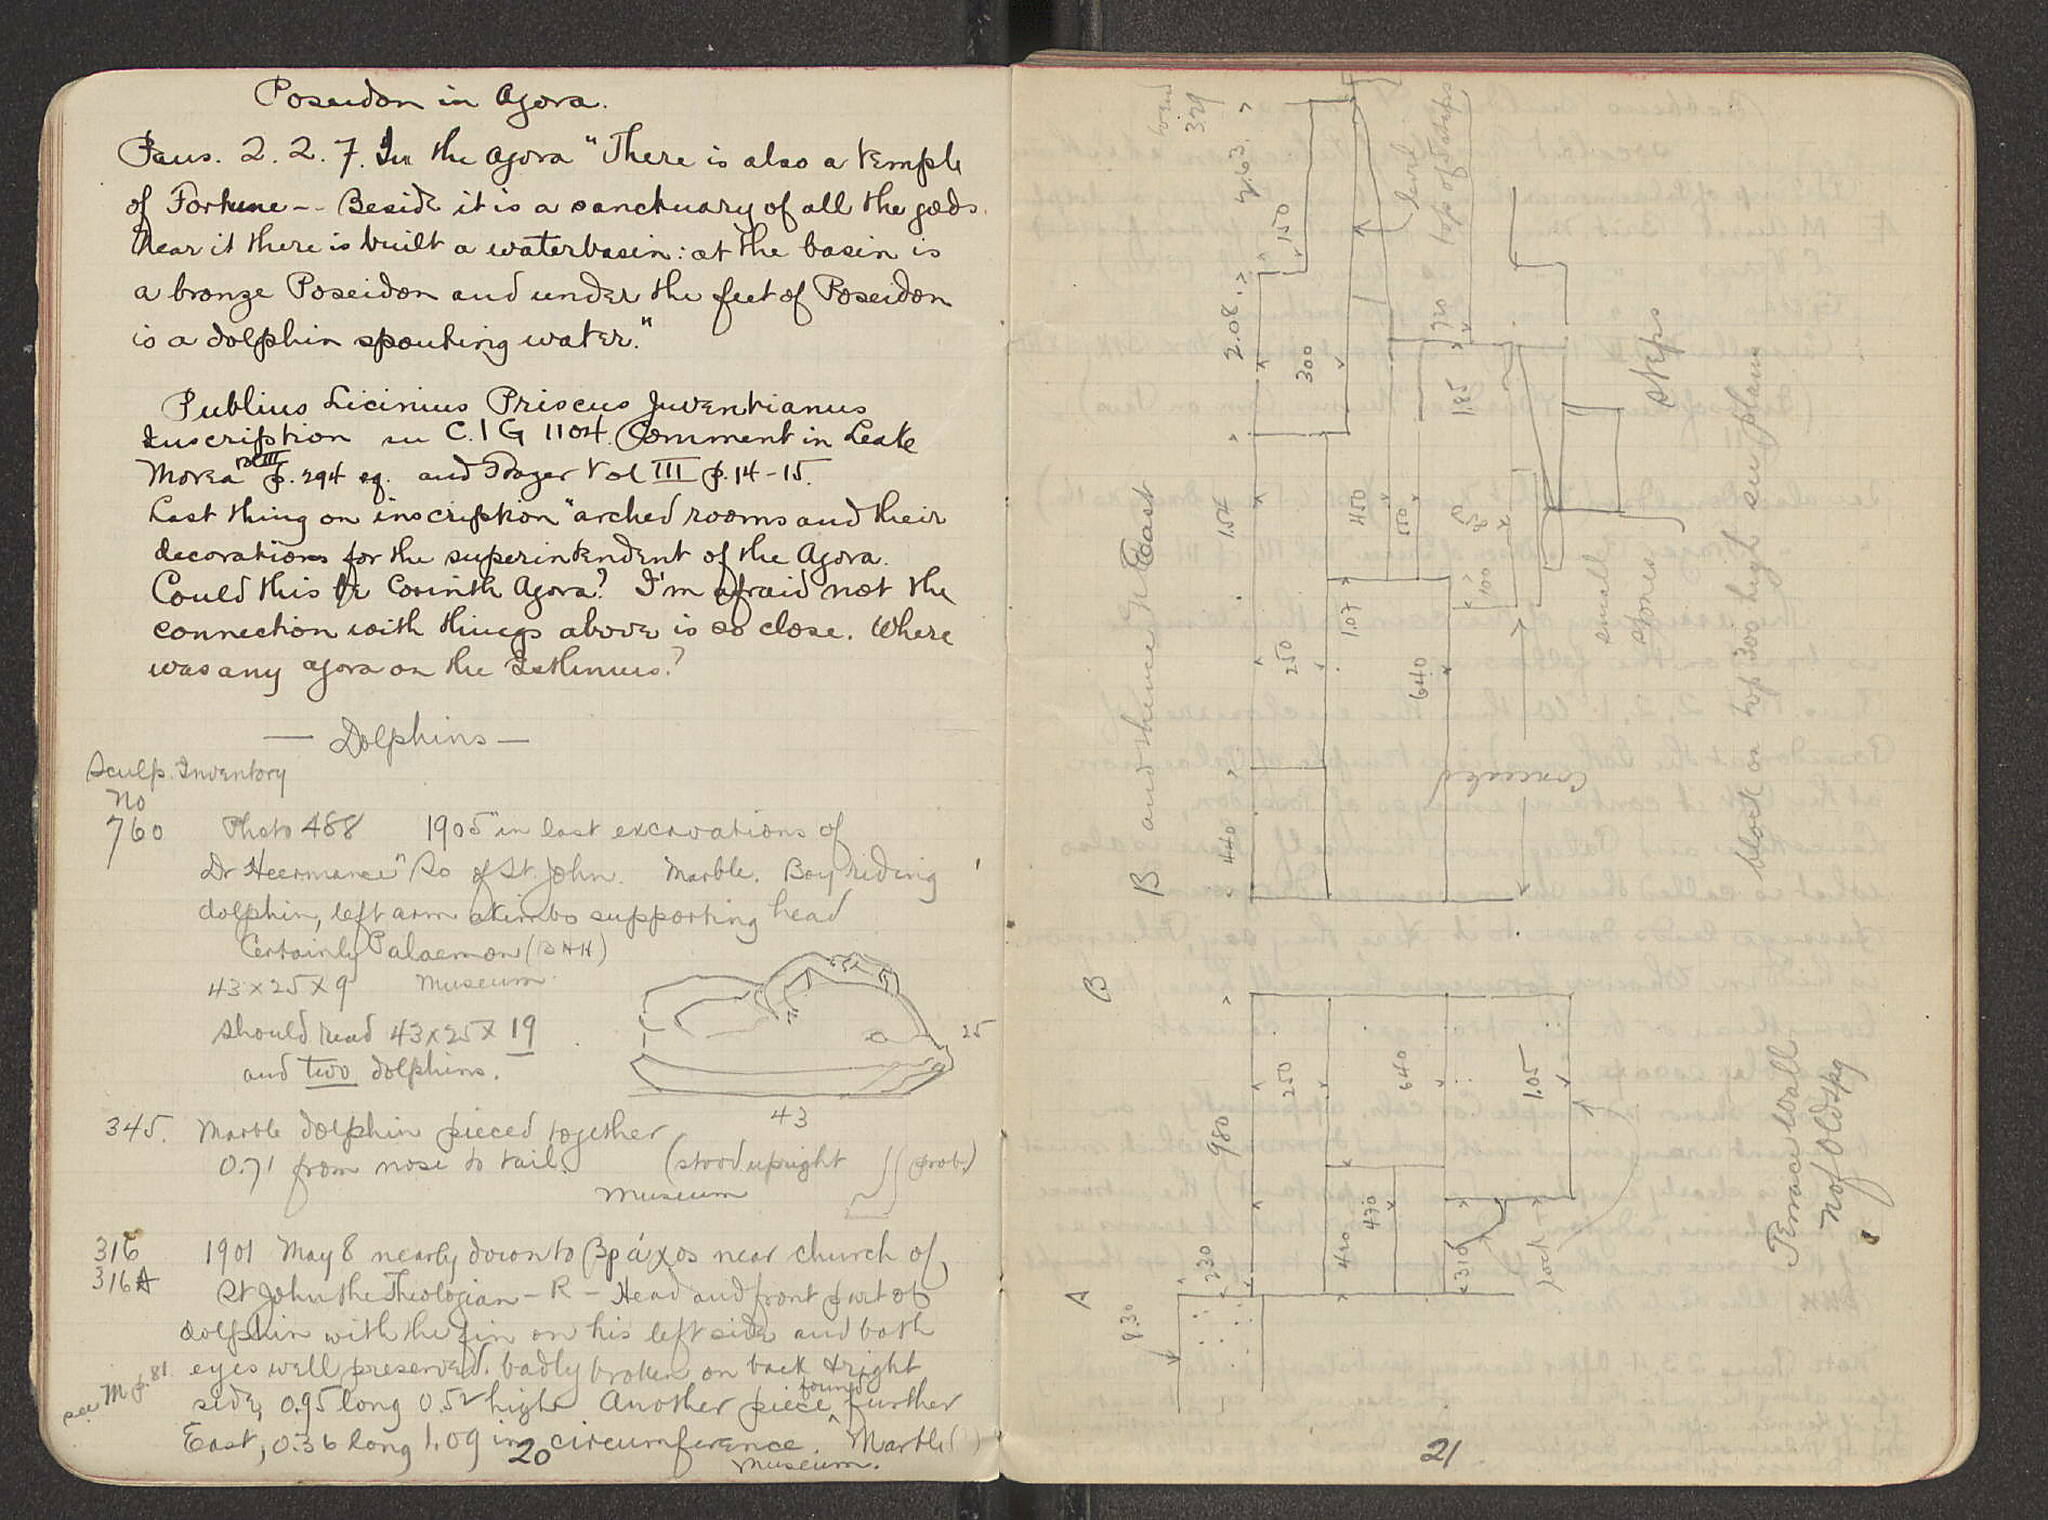 Poseidon in Agora.
Paus. 2. 2. 7. In the Agora "There is also a temple
of Fortune -- Beside it is a sanctuary of all the gods.
Near it there is built a waterbasin: at the basin is
a bronze Poseidon and under the feet of Poseidon
is a dolphin spouting water."
Publius Licinius Priscus Juventianus
Inscription in C.I G 1104. Comment in Leake
Morea Vol III p. 294 sq. and Frazer Vol III p. 14-15.
Last thing on inscription "arched rooms and their
decorations for the superintendent of the Agora.
Could this be Corinth Agora? I'm afraid not the
connection with things above is so close. Where
was any agora on the Isthmus?
— Dolphins —
Sculp. Inventory
No
760 Photo 488 1905 "in last excavations of
Dr Heermance" So of St. John. Marble. Boy riding
dolphin, left arm akimbo supporting head
Certainly Palaemon (BHH)
43 x 25 x 9 Museum
should read 43 x 25 x 19
and two dolphins.
25
43
345. Marble dolphin pieced together
0.71 from nose to tail. (stood upright prob.)
Museum
316 1901 May 8 nearly down to Βράχος near church of
316A St John the Theologian - R - Head and front part of
dolphin with the fin on his left side and both
eyes well preserved. badly broken on back & right
see M p. 81
side, 0.95 long 0.52 high Another piece found further
East, 0.36 long 1.09 in circumference. Marble ( )
Museum.
20
B and thence N East
2.63
329
150
level
top of steps
2.08
300
720
1.85
steps
1.54
450
550
100
small
stones
250
1.07
640
concealed
440
block on top 300 high see plan
A
B
980
250
640
1.05
230
8.30
410
430
310
rock
Terrace Wall
N of Old Spg
21